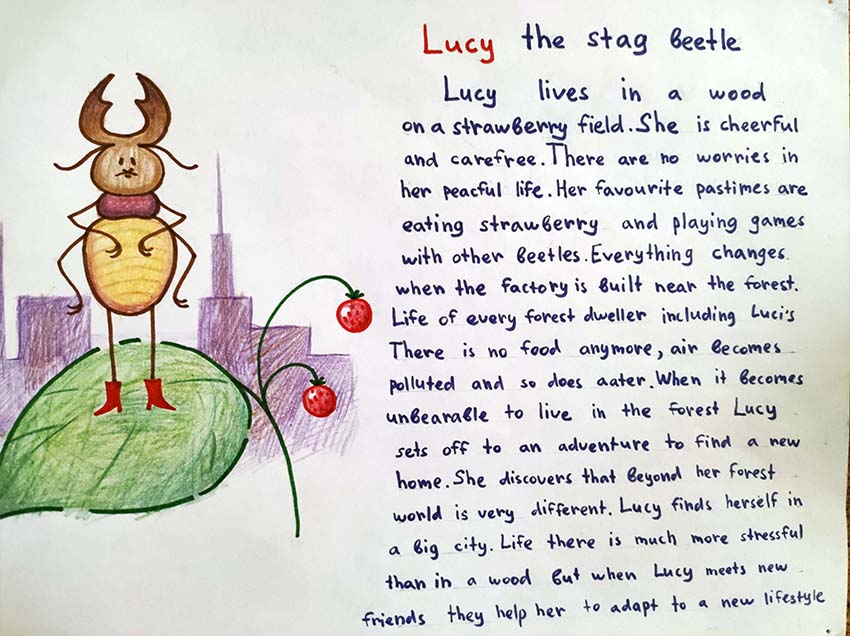 Lucy the stag beetle
Lucy lives in a wood
on a strawberry field. She is cheerful
and carefree. There are no worries in
her peacful life. Her favourite pastimes are
eating strawberry and playing games
with other beetles. Everything changes
when the factory is built near the forest.
Life of every forest dweller including Luci's
There is no food anymore, air becomes
polluted and so does aater. When it becomes
unbearable to live in the forest Lucy
sets off to an adventure to find a new
home. She discovers that beyond her forest
world is very different. Lucy finds herself in
a big city. Life there is much more stressful
than in a wood but when Lucy meets new
friends they help her to adapt to a new lifestyle